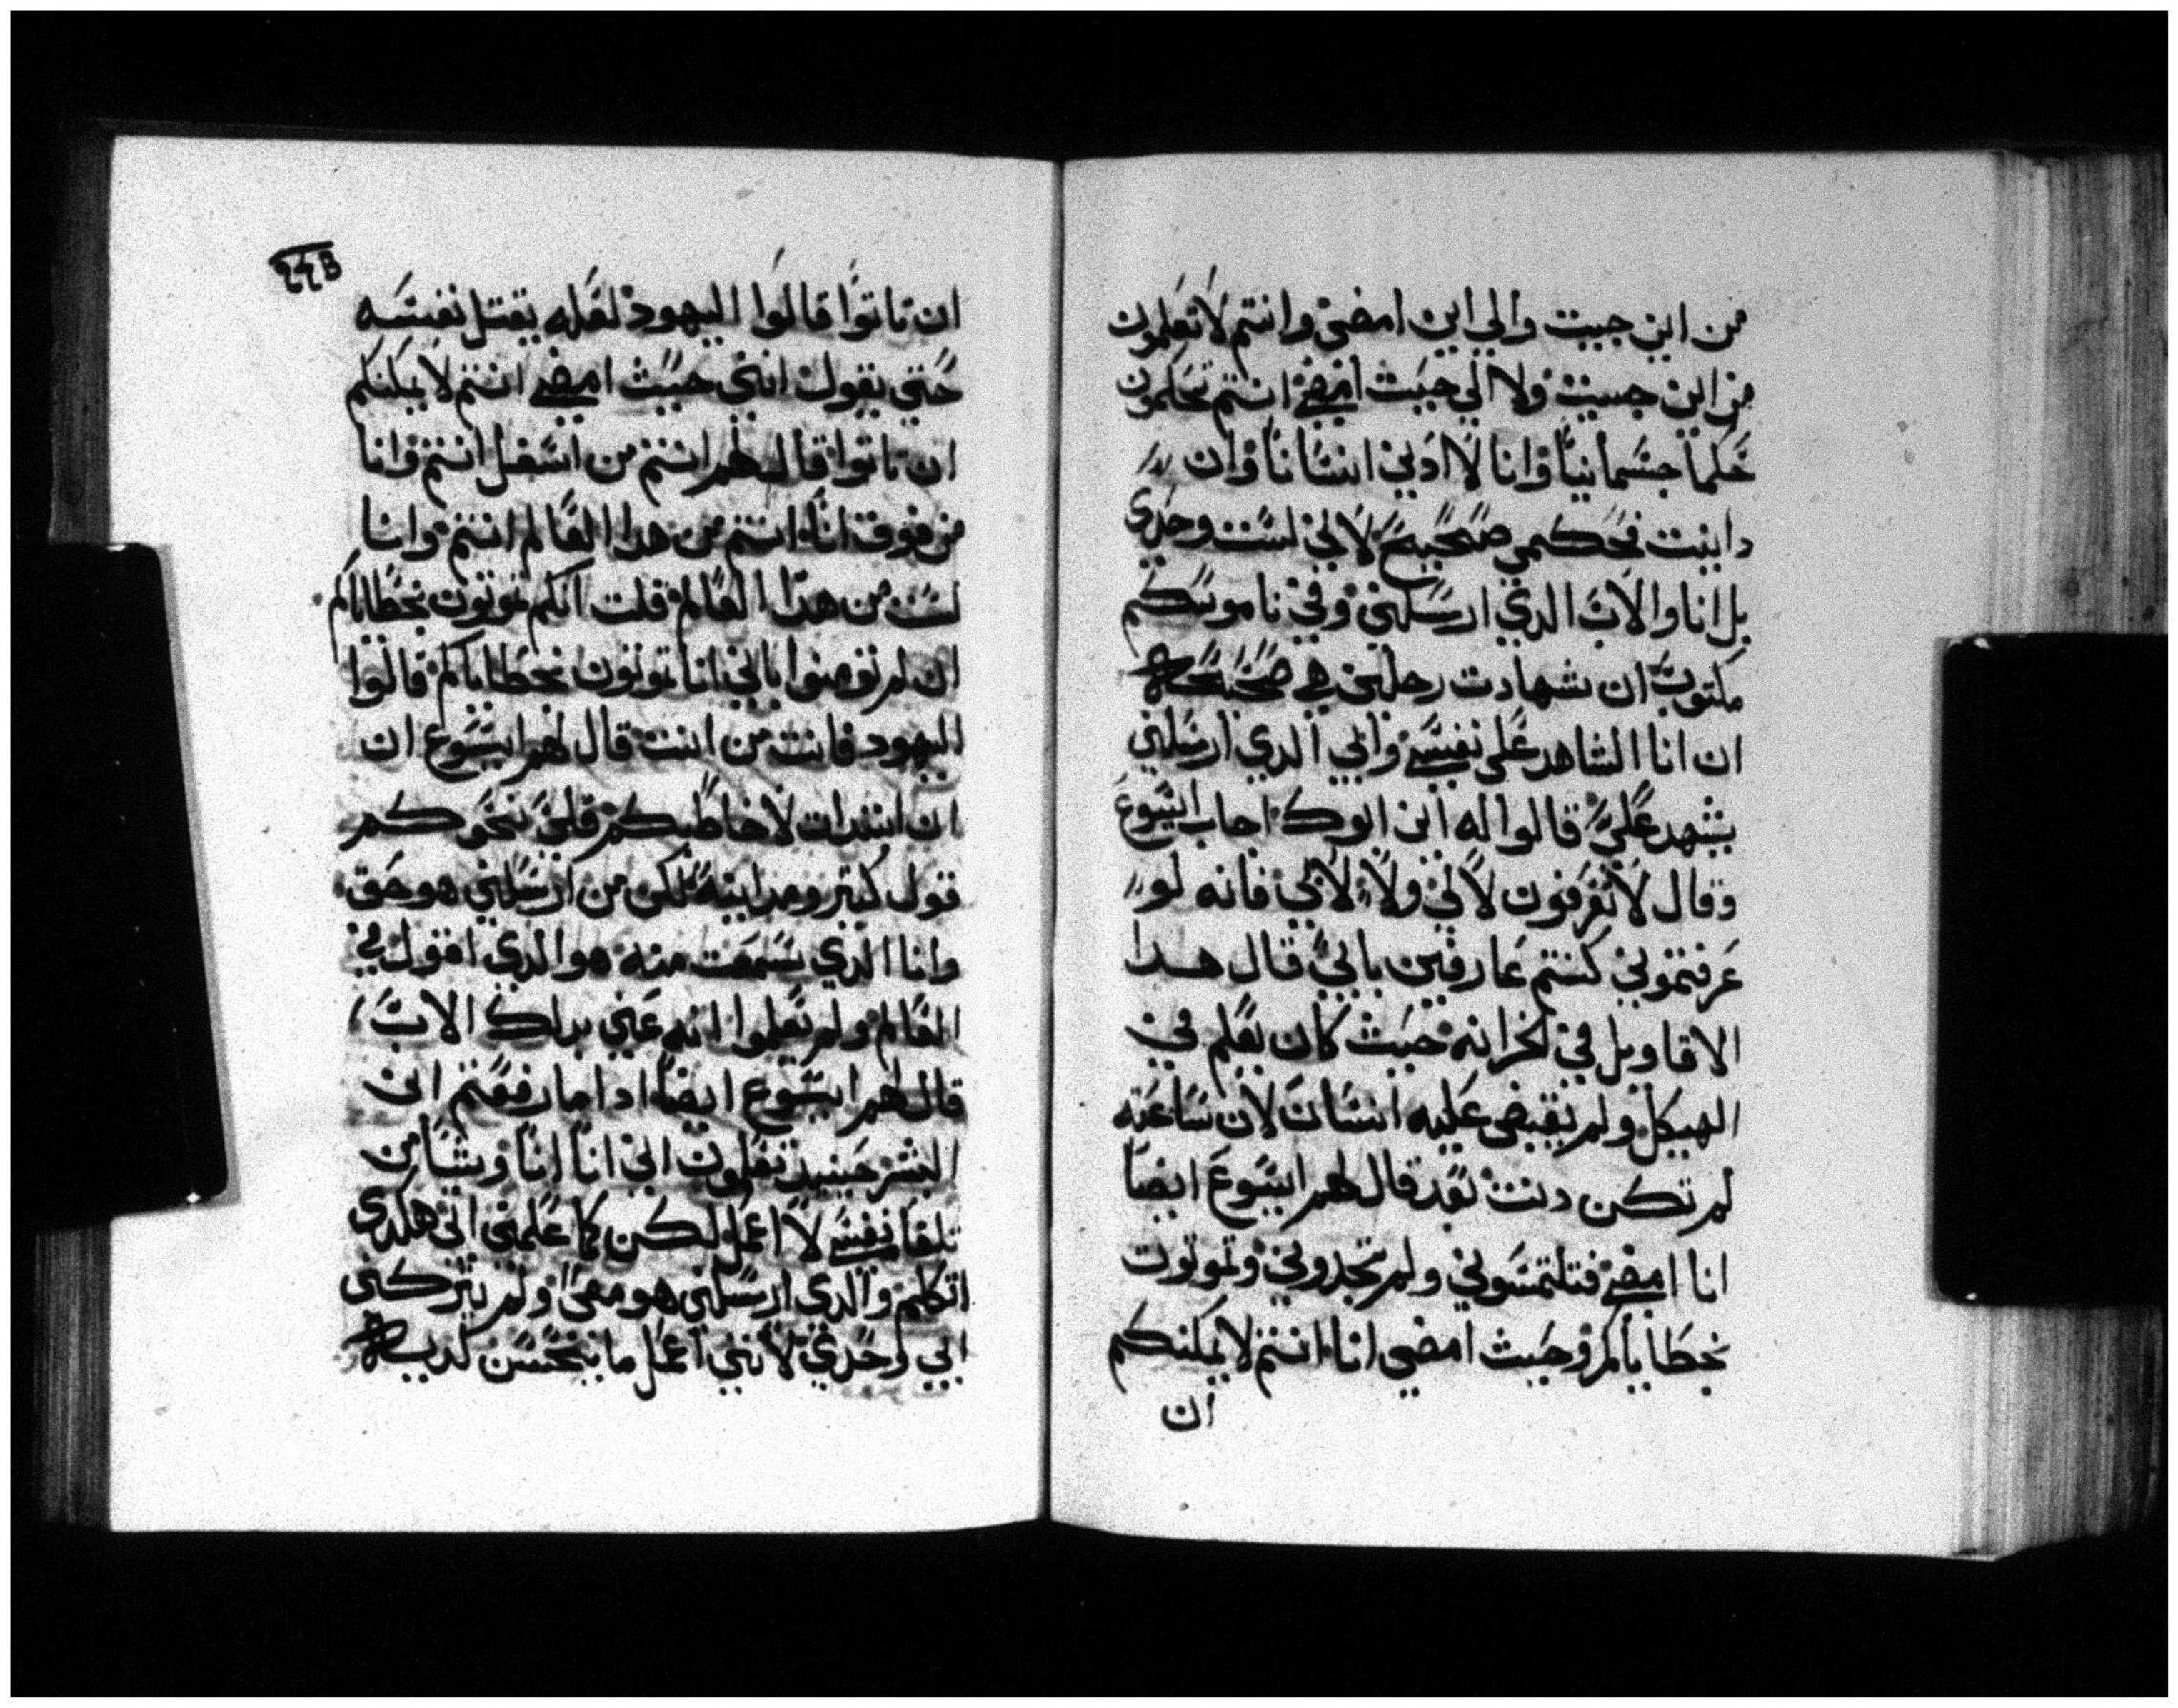 من اين جيت والي اين امضي وانتم لا تعلمون
من اين جييت ولا الي حيث امضي انتم تحكمون
حكما جسمانيا وانا لا ادين انسانا وان
داينت فحكمي صحيح لاني لست وحدي
بل انا والاب الدي ارسلني وفي ناموسكم
مكتوب ان شهادت رجلين هي صحيحه
ان انا الشاهد علي نفسي وابي الدي ارسلني
يشهد علي قالوا له اين ابوك اجاب ايسوع
وقال لا تعرفون لا لي ولا لابي فانه لو
عرفتموني كنتم عارفين بابي قال هدا
الاقاويل في لخزانه حيث كان يعلم في
الهيكل ولم يقبض عليه انسان لان ساعته
لم تكن دنت بعد قال لهم ايسوع ايضا
انا امضي فتلتمسوني ولم تجدوني وتموتون
بخطاياكم وحيث امضي انا انتم لا يمكنكم
ان
٢٤٤B
ان تاتوا قالوا اليهود لعله يقتل نفسه
حتي يقول انني حيث امضي انتم لا يمكنكم
ان تاتوا قال لهم انتم من اسفل انتم وانا
من فوق انا انتم من هدا العالم انتم وانا
لست من هدا العالم قلت انكم تموتون بخطاياكم
ان لم تومنوا باني انا تموتون بخطاياكم قالوا
اليهود فانت من انت قال لهم ايسوع ان
ان ابتدات لاخاطبكم فلي نحوكم
قول كتير ومداينه لكن من ارسلني هو حق
وانا الدي سمعت منه هو الدي اقول في
العالم ولم يعلموا انه عني بدلك الاب
قال لهم ايسوع ايضا ادا ما رفعتم ابن
البشر حينيد تعلمون اني انا انا وشيا من
تلقا نفسي لا اعمل لكن كما علمني ابي هكدي
اتكلم والدي ارسلني هو معي ولم يتركني
ابي وحدي لانني اعمل ما يحسن لديه